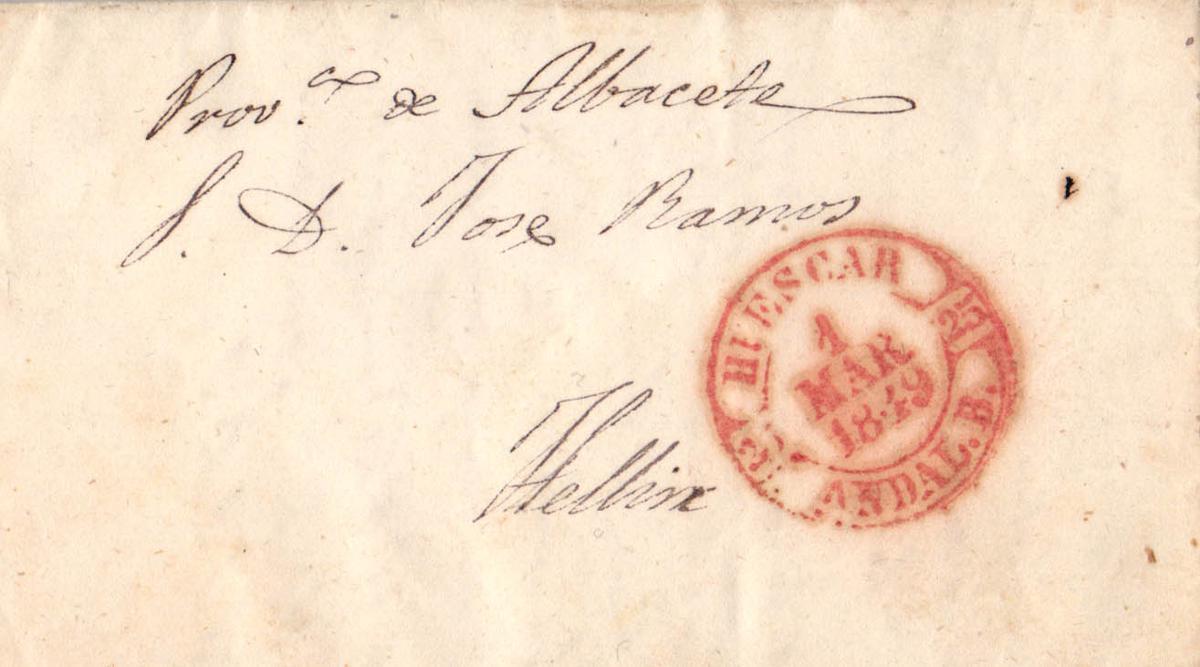 Prov.ª de Albacete
S. D. Jose Ramos
HUESCAR
1
MAR
1849
ANDAL. B.
Hellin